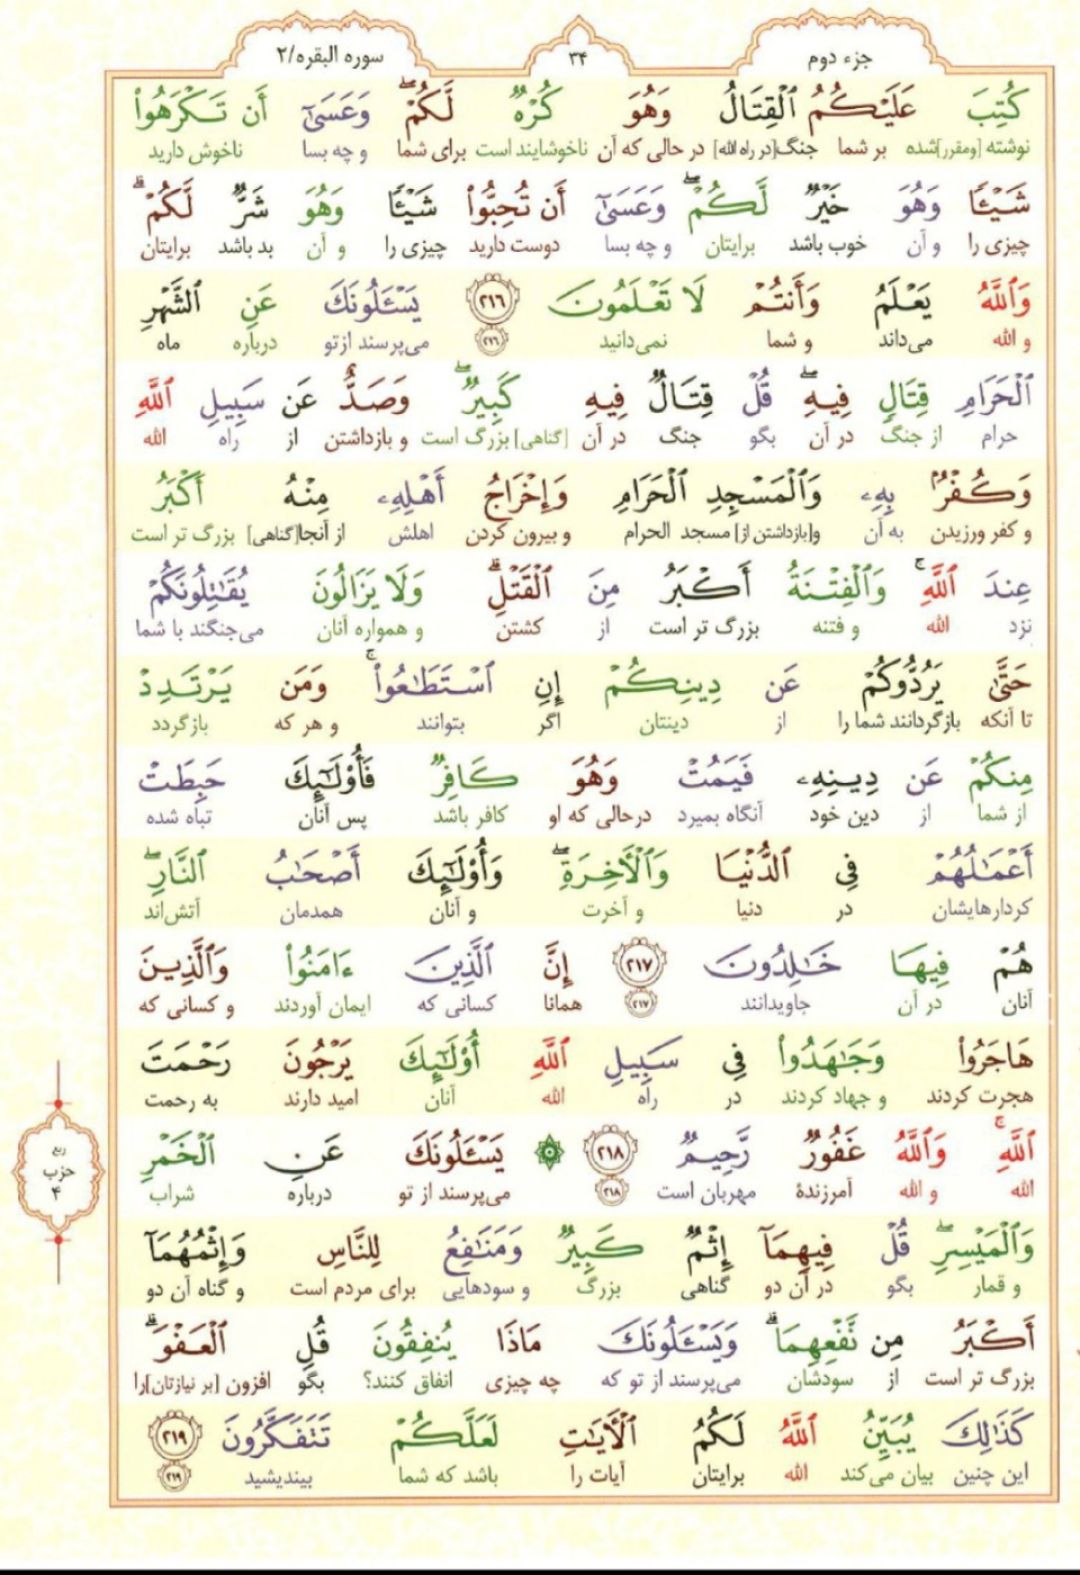 جزء دوم
۳۴
سوره البقره/۲
كُتِبَ عَلَيْكُمُ ٱلْقِتَالُ وَهُوَ كُرْهٌ لَّكُمْ ۖ وَعَسَىٰٓ أَن تَكْرَهُوا۟
نوشته [ومقرر]شده بر شما جنگ[در راه الله] در حالی که آن ناخوشایند است برای شما و چه بسا ناخوش دارید
شَيْـًٔا وَهُوَ خَيْرٌ لَّكُمْ ۖ وَعَسَىٰٓ أَن تُحِبُّوا۟ شَيْـًٔا وَهُوَ شَرٌّ لَّكُمْ ۗ
چیزی را و آن خوب باشد برایتان و چه بسا دوست دارید چیزی را و آن بد باشد برایتان
وَٱللَّهُ يَعْلَمُ وَأَنتُمْ لَا تَعْلَمُونَ ۲۱۶ يَسْـَٔلُونَكَ عَنِ ٱلشَّهْرِ
و الله می‌داند و شما نمی‌دانید ۲۱۶ می‌پرسند ازتو درباره ماه
ٱلْحَرَامِ قِتَالٍ فِيهِ ۖ قُلْ قِتَالٌ فِيهِ كَبِيرٌ ۖ وَصَدٌّ عَن سَبِيلِ ٱللَّهِ
حرام از جنگ در آن بگو جنگ در آن [گناهی] بزرگ است و بازداشتن از راه الله
وَكُفْرٌۢ بِهِۦ وَٱلْمَسْجِدِ ٱلْحَرَامِ وَإِخْرَاجُ أَهْلِهِۦ مِنْهُ أَكْبَرُ
و کفر ورزیدن به آن و[بازداشتن از] مسجد الحرام و بیرون کردن اهلش از آنجا[گناهی] بزرگ تر است
عِندَ ٱللَّهِ ۚ وَٱلْفِتْنَةُ أَكْبَرُ مِنَ ٱلْقَتْلِ ۗ وَلَا يَزَالُونَ يُقَـٰتِلُونَكُمْ
نزد الله و فتنه بزرگ تر است از کشتن و همواره آنان می‌جنگند با شما
حَتَّىٰ يَرُدُّوكُمْ عَن دِينِكُمْ إِنِ ٱسْتَطَـٰعُوا۟ ۚ وَمَن يَرْتَدِدْ
تا آنکه بازگردانند شما را از دینتان اگر بتوانند و هر که بازگردد
مِنكُمْ عَن دِينِهِۦ فَيَمُتْ وَهُوَ كَافِرٌ فَأُو۟لَـٰٓئِكَ حَبِطَتْ
از شما از دین خود آنگاه بمیرد درحالی که او کافر باشد پس آنان تباه شده
أَعْمَـٰلُهُمْ فِى ٱلدُّنْيَا وَٱلْـَٔاخِرَةِ ۖ وَأُو۟لَـٰٓئِكَ أَصْحَـٰبُ ٱلنَّارِ ۖ
کردارهایشان در دنیا و آخرت و آنان همدمان آتش‌اند
هُمْ فِيهَا خَـٰلِدُونَ ۲۱۷ إِنَّ ٱلَّذِينَ ءَامَنُوا۟ وَٱلَّذِينَ
آنان در آن جاویدانند ۲۱۷ همانا کسانی که ایمان آوردند و کسانی که
هَاجَرُوا۟ وَجَـٰهَدُوا۟ فِى سَبِيلِ ٱللَّهِ أُو۟لَـٰٓئِكَ يَرْجُونَ رَحْمَتَ
هجرت کردند و جهاد کردند در راه الله آنان امید دارند به رحمت
ٱللَّهِ ۚ وَٱللَّهُ غَفُورٌ رَّحِيمٌ ۲۱۸ يَسْـَٔلُونَكَ عَنِ ٱلْخَمْرِ
الله و الله آمرزندهٔ مهربان است ۲۱۸ می‌پرسند از تو درباره شراب
ربع
حزب
۴
وَٱلْمَيْسِرِ ۖ قُلْ فِيهِمَآ إِثْمٌ كَبِيرٌ وَمَنَـٰفِعُ لِلنَّاسِ وَإِثْمُهُمَآ
و قمار بگو در آن دو گناهی بزرگ و سودهایی برای مردم است و گناه آن دو
أَكْبَرُ مِن نَّفْعِهِمَا ۗ وَيَسْـَٔلُونَكَ مَاذَا يُنفِقُونَ قُلِ ٱلْعَفْوَ ۗ
بزرگ تر است از سودشان می‌پرسند از تو که چه چیزی انفاق کنند؟ بگو افزون [بر نیازتان]را
كَذَٰلِكَ يُبَيِّنُ ٱللَّهُ لَكُمُ ٱلْـَٔايَـٰتِ لَعَلَّكُمْ تَتَفَكَّرُونَ ۲۱۹
این چنین بیان می‌کند الله برایتان آیات را باشد که شما بیندیشید ۲۱۹